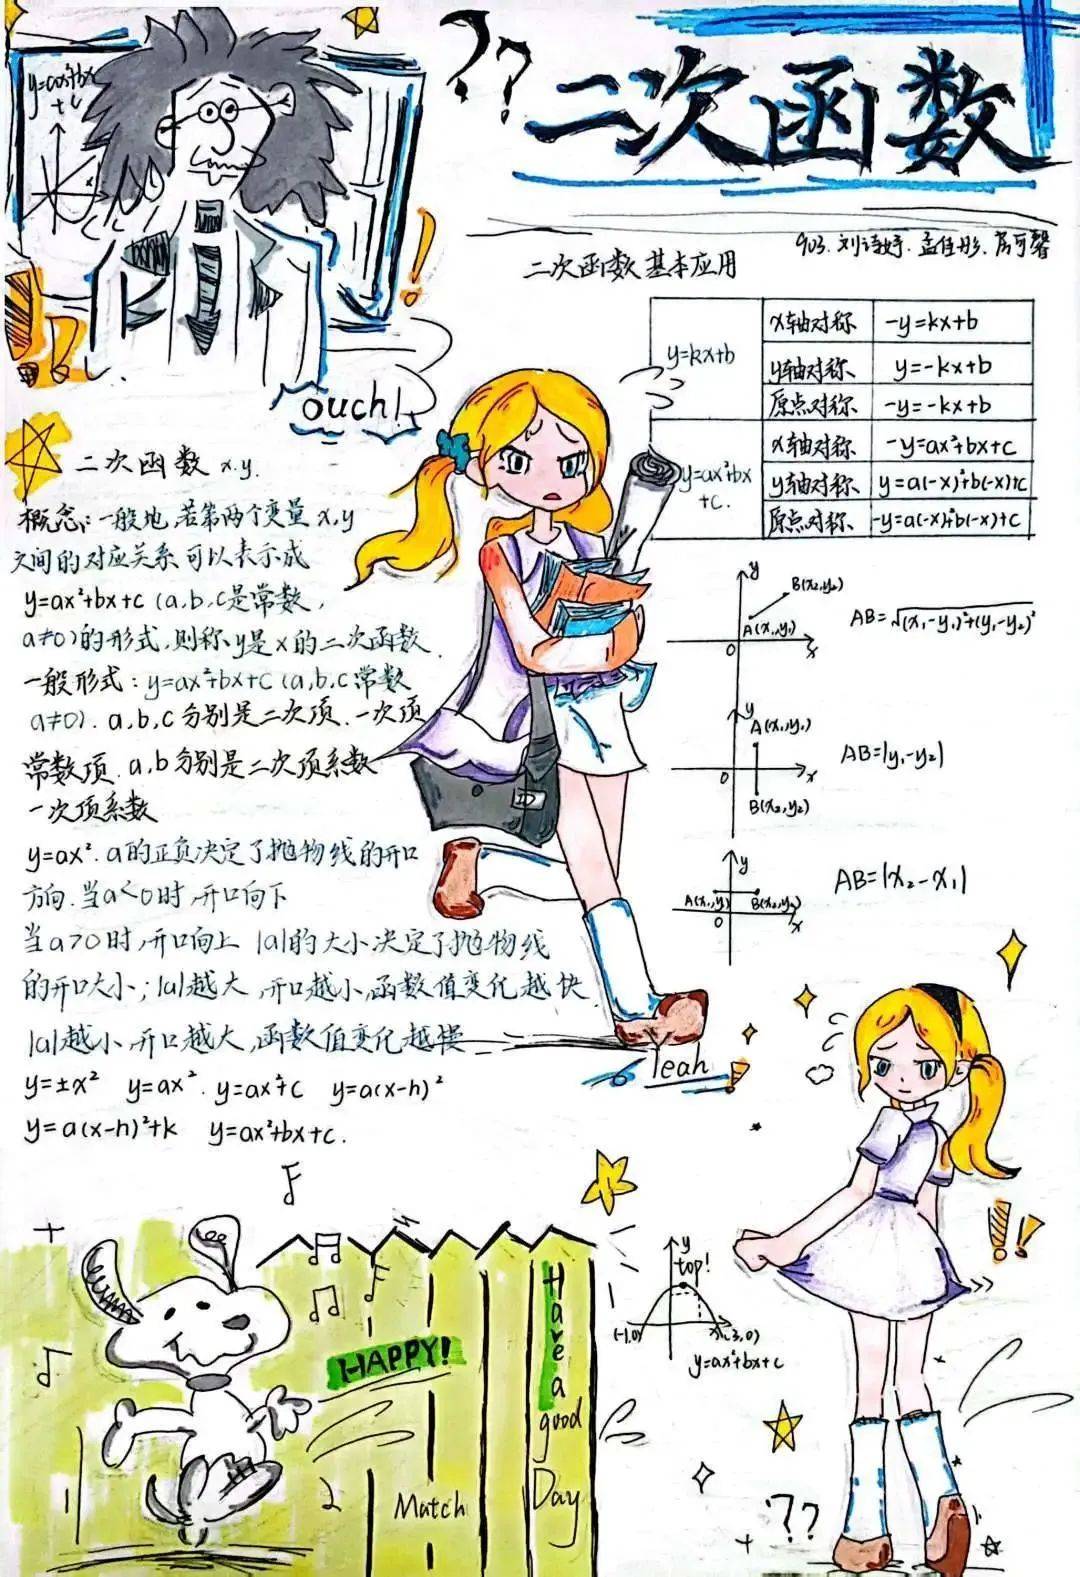 y=ax²+bx
+c
x
??
二次函数
903.刘诗妤.孟佳彤.芮可馨
二次函数基本应用
y=kx+b
x轴对称 -y=kx+b
y轴对称 y=-kx+b
原点对称 -y=-kx+b
y=ax²+bx
+c.
x轴对称 -y=ax²+bx+c
y轴对称 y=a(-x)²+b(-x)+c
原点对称 -y=a(-x)²+b(-x)+c
ouch!
二次函数 x.y.
概念:一般地,若第两个变量x,y
之间的对应关系可以表示成
y=ax²+bx+c(a,b,c是常数,
a≠0)的形式,则称y是x的二次函数.
一般形式:y=ax²+bx+c(a,b,c常数
a≠0).a,b,c分别是二次项.一次项
常数项.a,b分别是二次项系数
一次项系数
y=ax².a的正负决定了抛物线的开口
方向.当a<0时,开口向下
当a>0时,开口向上 |a|的大小决定了抛物线
的开口大小;|a|越大,开口越小,函数值变化越快
|a|越小,开口越大,函数值变化越慢
y=±x² y=ax². y=ax²+c y=a(x-h)²
y=a(x-h)²+k y=ax²+bx+c.
y
B(x₂,y₂)
A(x₁,y₁)
0
x
AB=√(x₁-y₁)²+(y₁-y₂)²
y
A(x₁,y₁)
0
x
B(x₂,y₂)
AB=|y₁-y₂|
y
A(x₁,y₁) B(x₂,y₂)
0
x
AB=|x₂-x₁|
Yeah
!
y
top!
(-1,0)
x(3,0)
y=ax²+bx+c
HAPPY!
Have a
good
Day
Match
??